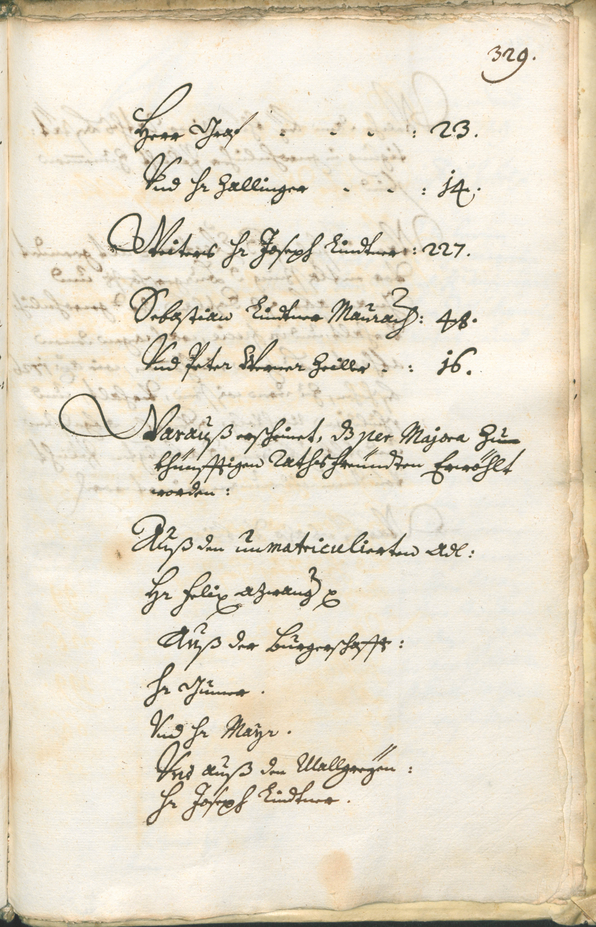 329.
Herr Graf - - - : 23.
Und Hr Zallinger - - : 14.
Weiters Hr Joseph Lindtner : 227.
Sebastian Lindtner Maurach : 48.
Und Peter Werner Zeiller : : 16.
Warauß erscheinet, dß per Majora zu
khünfftigen Rathsfreündten Erwöhlt
worden :
Auß den unmatriculierten Adl :
Hr Felix
Auß der Burgerschafft :
Hr Gumer .
Und Hr Mayr .
Und auß den Mallgreyen :
Hr Joseph Lindtner .